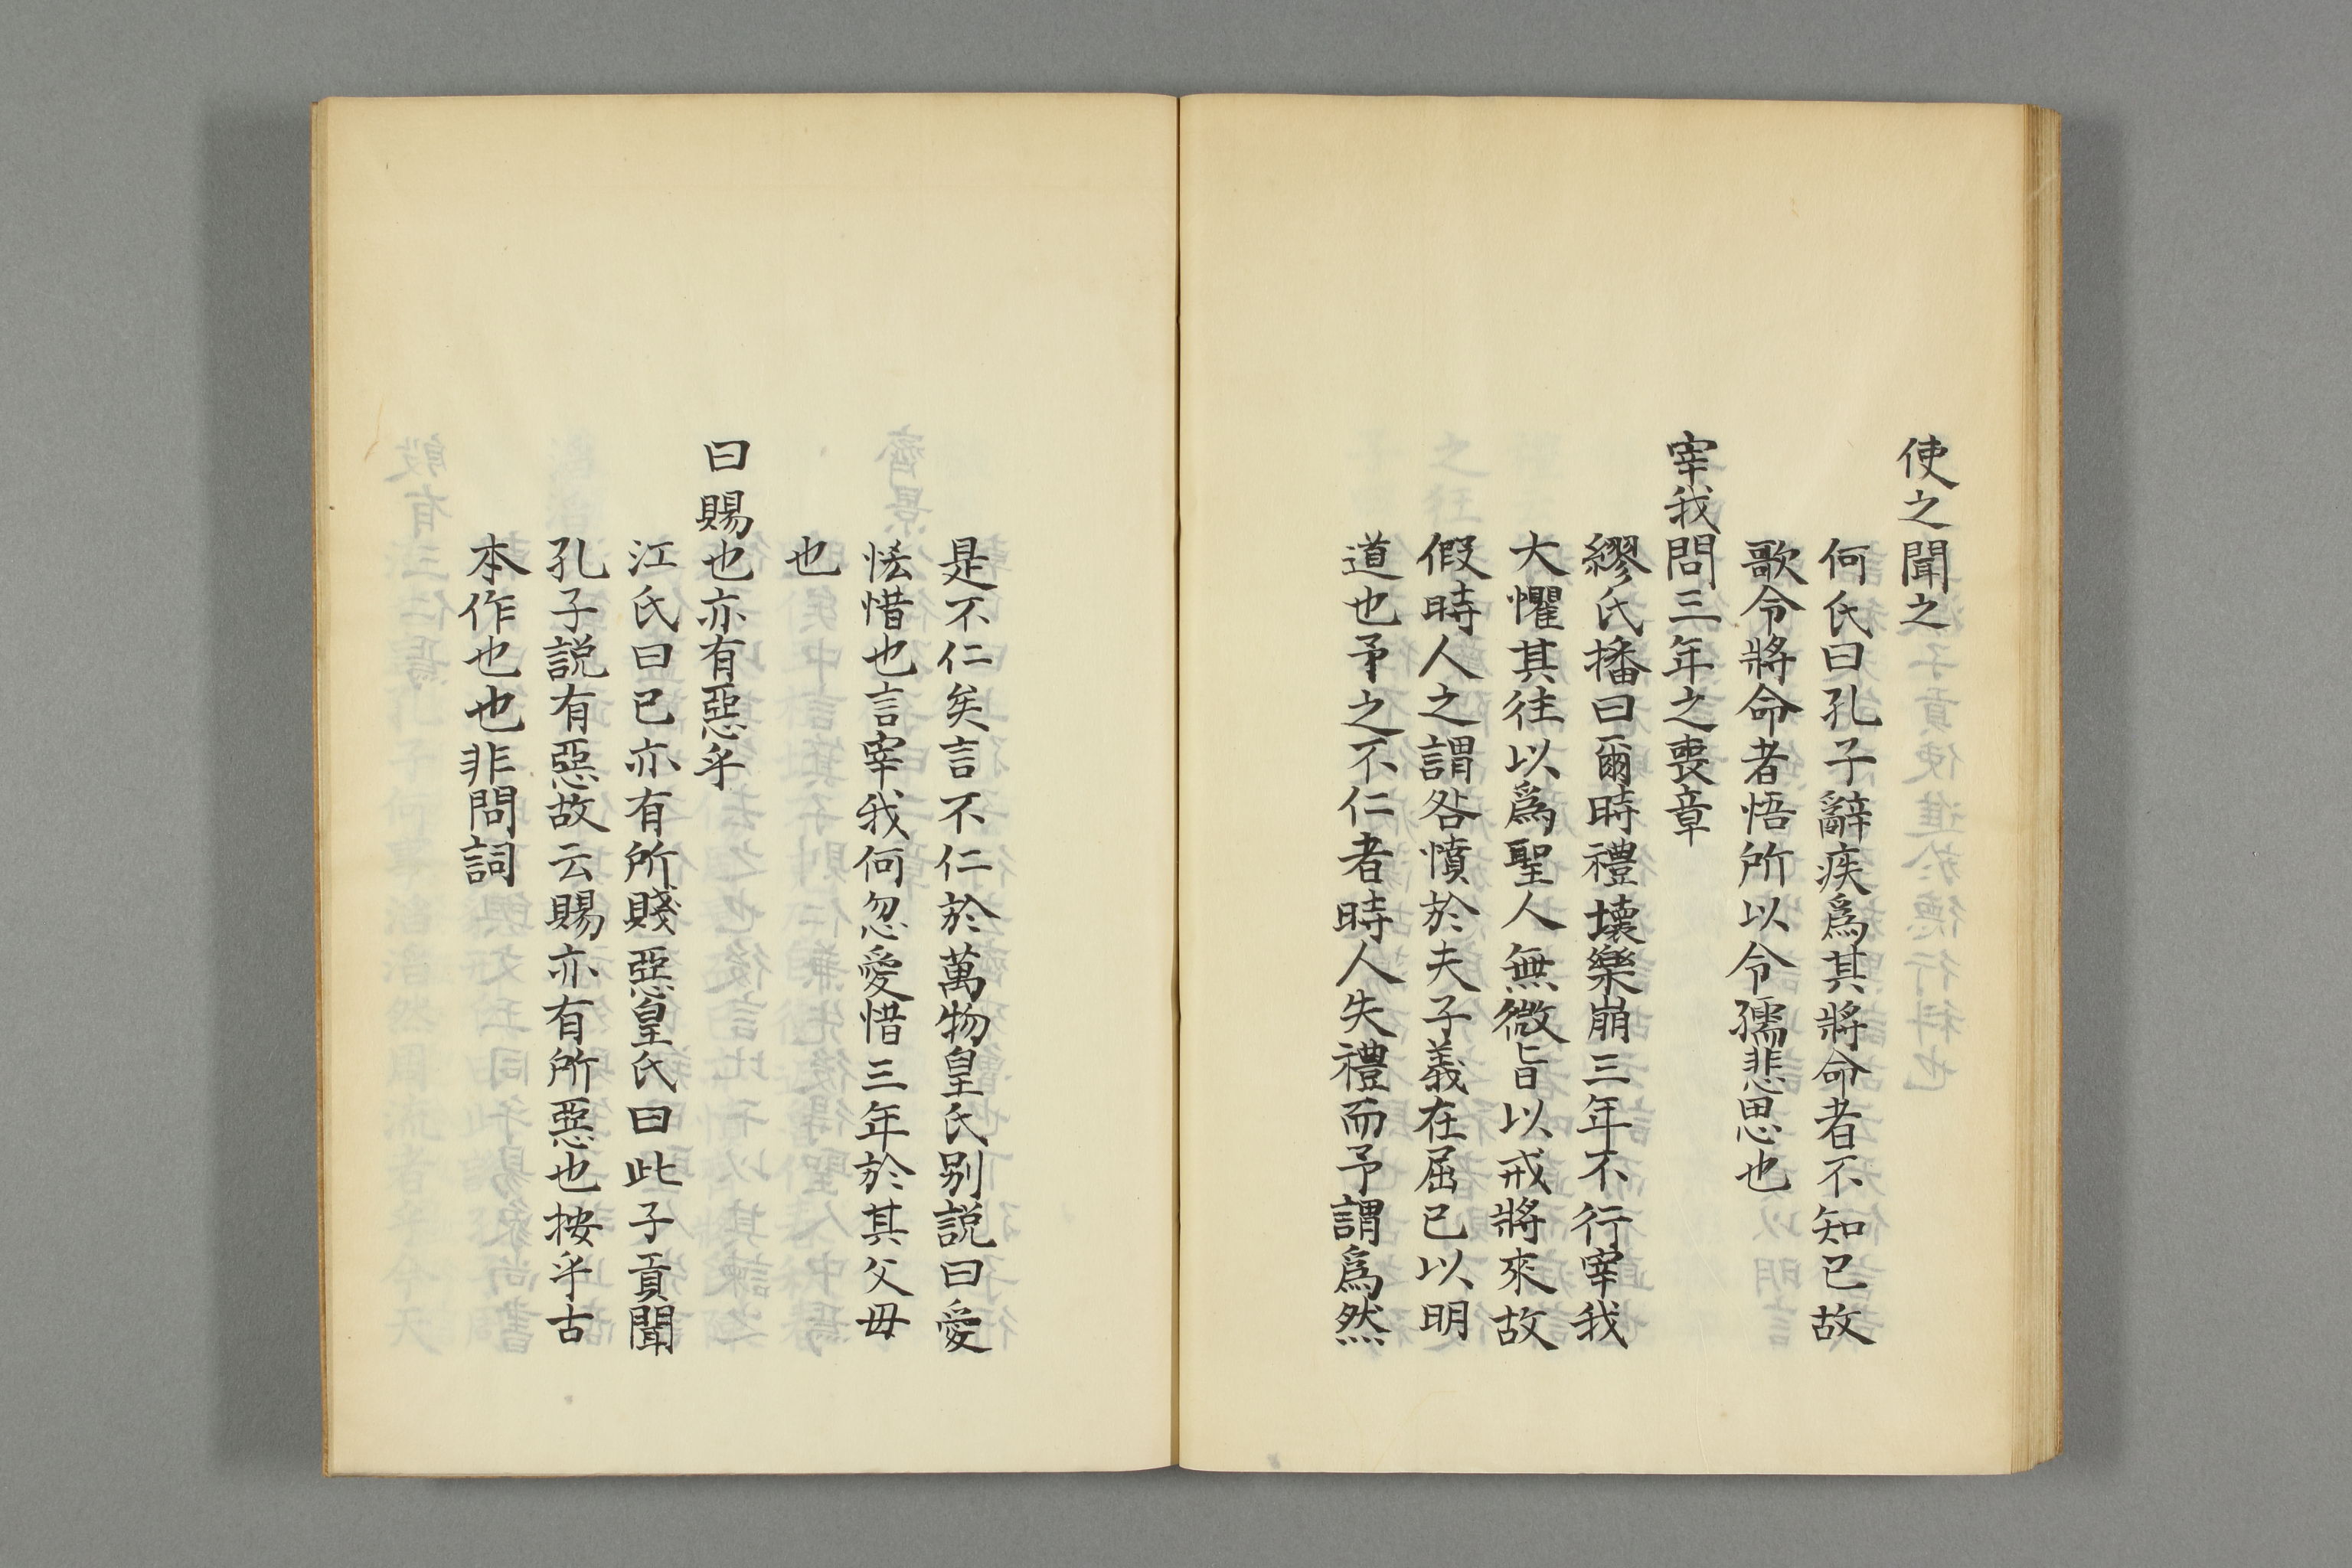 使之聞之
何氏曰孔子辭疾爲其將命者不知已故
歌令將命者悟所以令孺悲思也
宰我問三年之喪章
繆氏播曰爾時禮壞樂崩三年不行宰我
大懼其往以爲聖人無微旨以戒將來故
假時人之謂咎憤於夫子義在屈已以明
道也予之不仁者時人失禮而予謂爲然
是不仁矣言不仁於萬物皇氏別説曰愛
恡惜也言宰我何忽愛惜三年於其父母
也
曰賜也亦有惡乎
江氏曰已亦有所賤惡皇氏曰此子貢聞
孔子説有惡故云賜亦有所惡也按乎古
本作也也非問詞